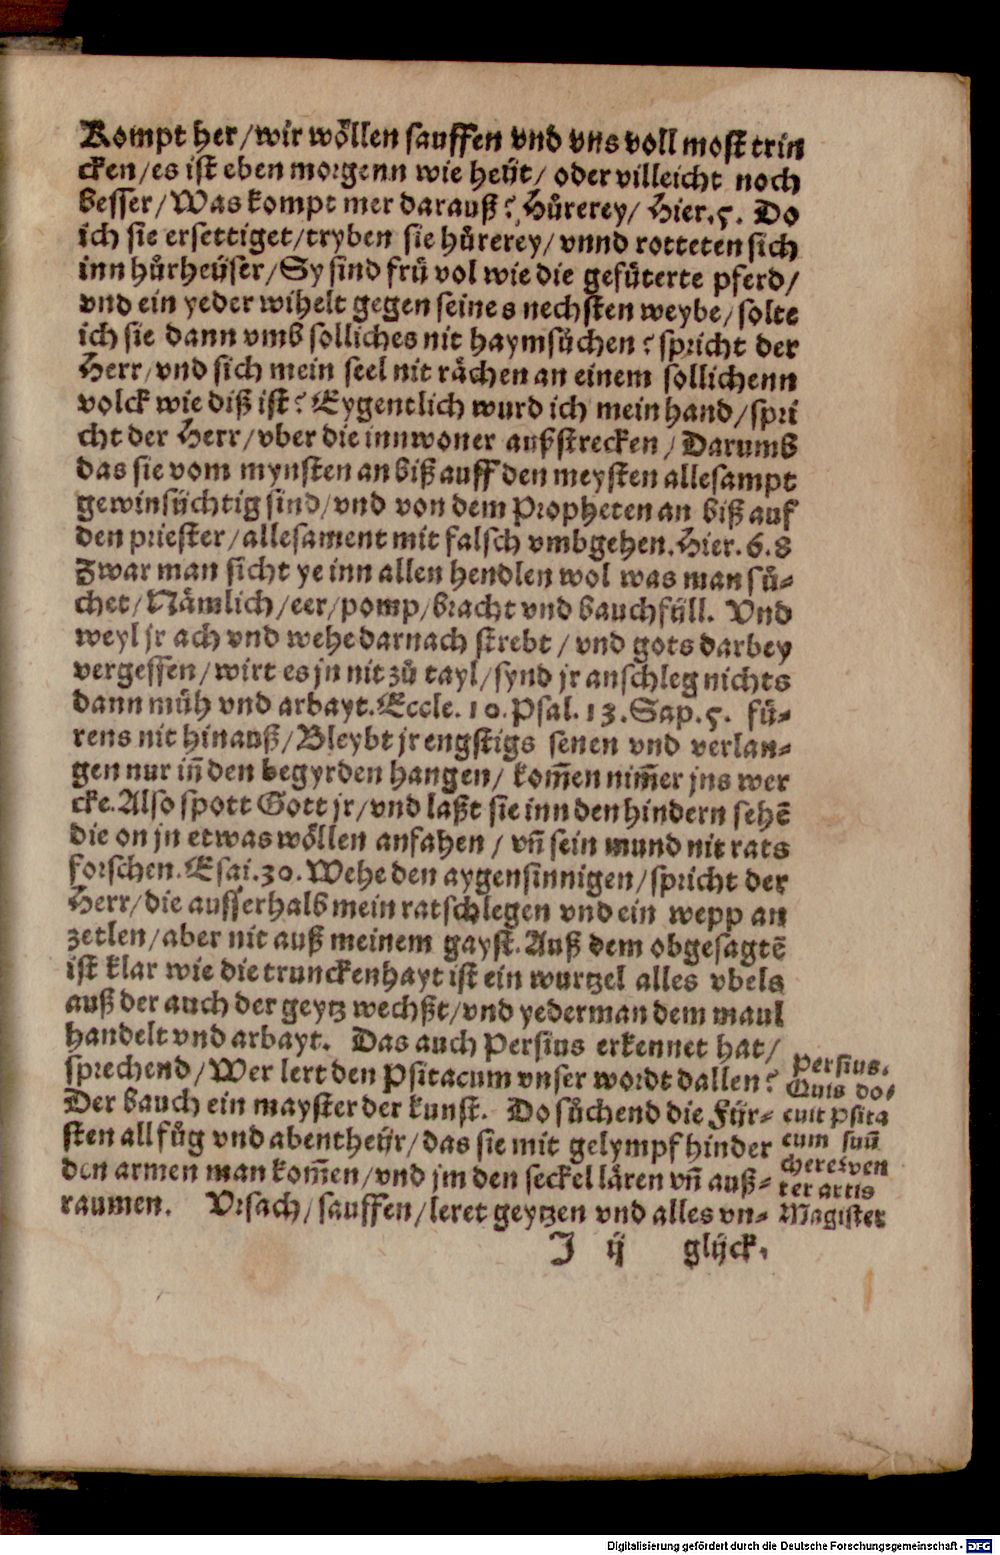 Kompt her/wir wöllen sauffen vnd vns voll most trin
cken/es ist eben morgenn wie heüt/ oder villeicht noch
besser/Was kompt mer darauß? Hůrerey/ Hier.5. Do
ich sie ersettiget/tryben sie hůrerey/vnnd rotteten sich
inn hůrheüser/Sy sind frü vol wie die gefüterte pferd/
vnd ein yeder wihelt gegen seines nechsten weybe/solte
ich sie dann vmb solliches nit haymsůchen? spricht der
Herr/vnd sich mein seel nit rächen an einem sollichenn
volck wie diß ist? Eygentlich wurd ich mein hand/spri
cht der Herr/vber die innwoner außstrecken/Darumb
das sie vom mynsten an biß auff den meysten allesampt
gewinsüchtig sind/vnd von dem Propheten an biß auf
den priester/allesament mit falsch vmbgehen. Hier.6.8
Zwar man sicht ye inn allen hendlen wol was man sů-
chet/Nämlich/eer/pomp/bracht vnd bauchfüll. Vnd
weyl jr ach vnd wehe darnach strebt/vnd gots darbey
vergessen/wirt es jn nit zů tayl/synd jr anschleg nichts
dann müh vnd arbayt. Eccle.10.Psal.13.Sap.5. fü-
rens nit hinauß/Bleybt jr engstigs senen vnd verlan-
gen nur iñ den begyrden hangen/ kom̃en nim̃er jns wer
cke. Also spott Gott jr/vnd laßt sie inn den hindern sehẽ
die on jn etwas wöllen anfahen/vñ sein mund nit rats
forschen. Esai.30. Wehe den aygensinnigen/spricht der
Herr/die ausserhalb mein ratschlegen vnd ein wepp an
zetlen/aber nit auß meinem gayst. Auß dem obgesagtẽ
ist klar wie die trunckenhayt ist ein wurtzel alles vbels
auß der auch der geytz wechßt/vnd yederman dem maul
handelt vnd arbayt. Das auch Persius erkennet hat/
sprechend/Wer lert den Psitacum vnser wordt dallen?
Der bauch ein mayster der kunst. Do sůchend die Für-
sten all fůg vnd abentheür/das sie mit gelympf hinder
den armen man kom̃en/vnd jm den seckel lären vñ auß-
raumen. Vrsach/sauffen/leret geytzen vnd alles vn-
Persius.
Quis do-
cuit psita
cum suũ
chere? ven
ter artis
Magister
J ij glück,
Digitalisierung gefördert durch die Deutsche Forschungsgemeinschaft - DFG